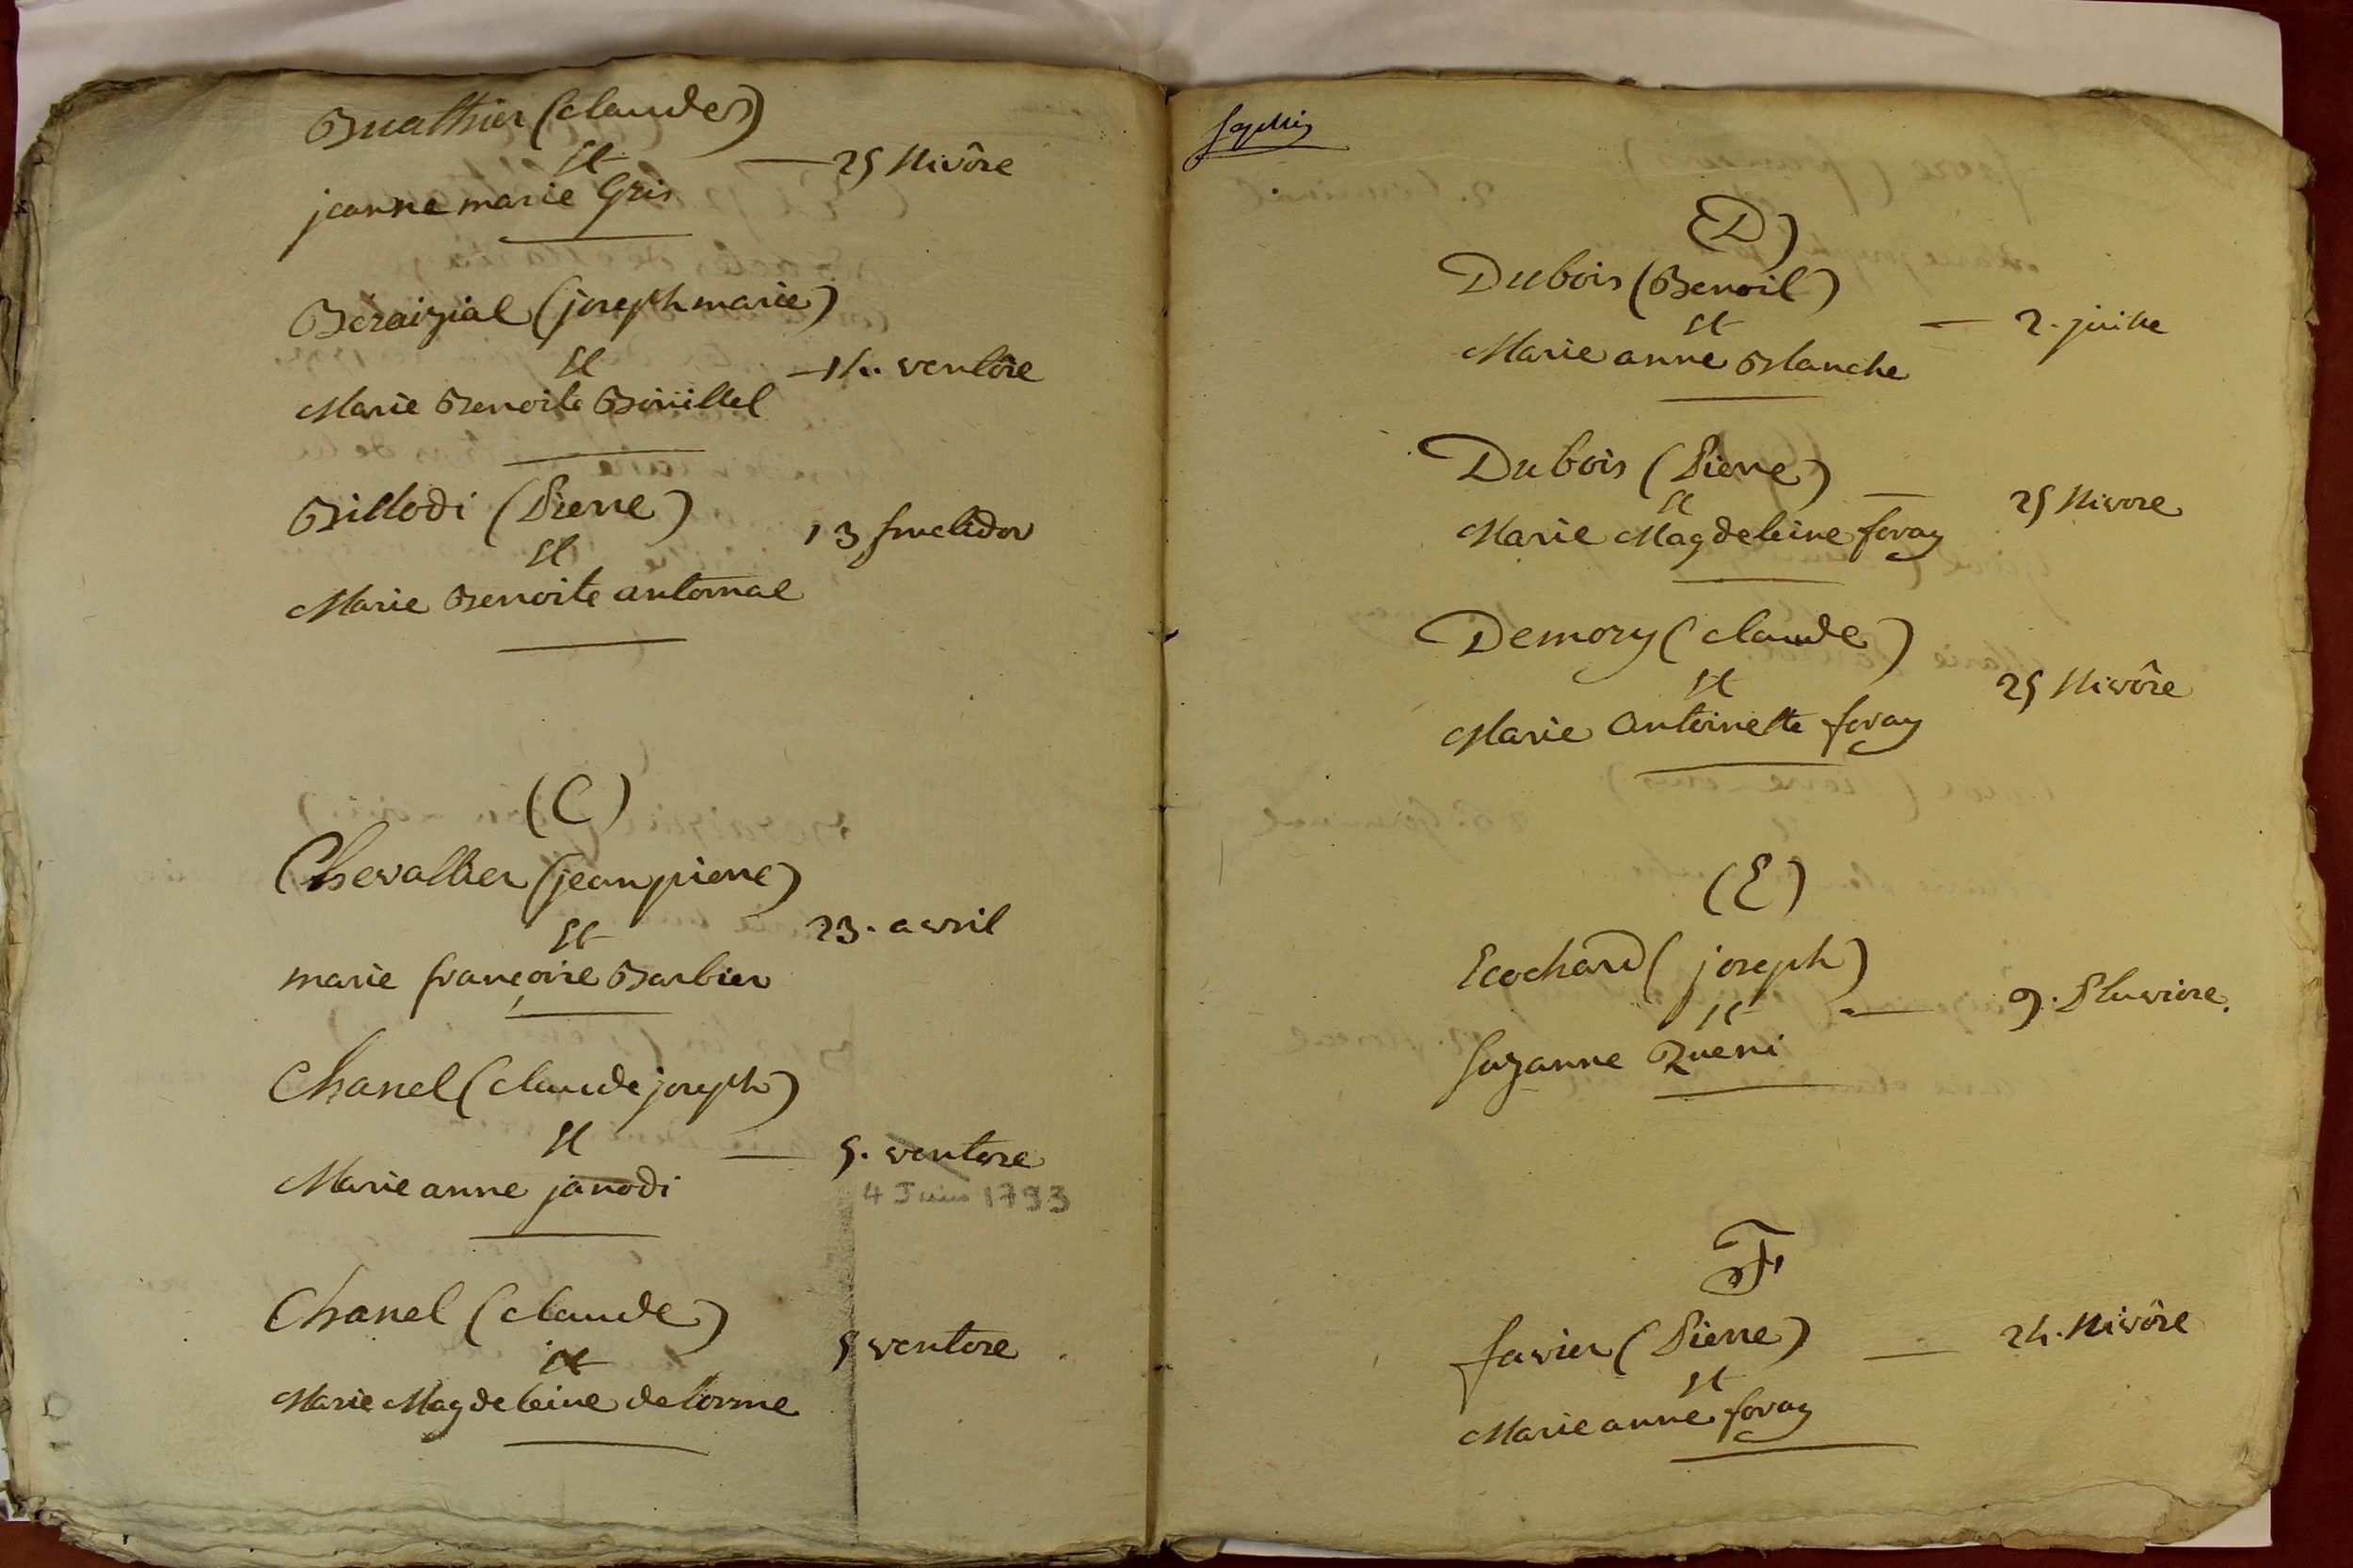 Buathier (claude)
Et
— 25 Nivôse
jeanne marie Gris
Béraizial (joseph marie)
Et
— 14. ventôse
Marie Benoite Boüillet
Billodi (Pierre)
13 fructidor
Et
Marie Benoite antomae
(C)
Chevallier (jean pierre)
Et
23. avril
marie françoise Barbier
Chanel (claude joseph)
Et
— 5. ventose
Marie anne janodi
4 Juin 1793
Chanel (claude)
Et
5 ventose
Marie Magdeleine delorme
(D)
Dubois (Benoit)
Et
— 2. juillet
Marie anne Blanche
Dubois (Pierre)
Et
— 25 Nivose
Marie Magdeleine foray
Demory (claude)
Et
25 Nivôse
Marie antoinette foray
(E)
Ecochard (joseph)
Et
— 9. Pluviose.
Suzanne Rueni
F
favier (Pierre)
Et
— 24. Nivôse
Marie anne foray